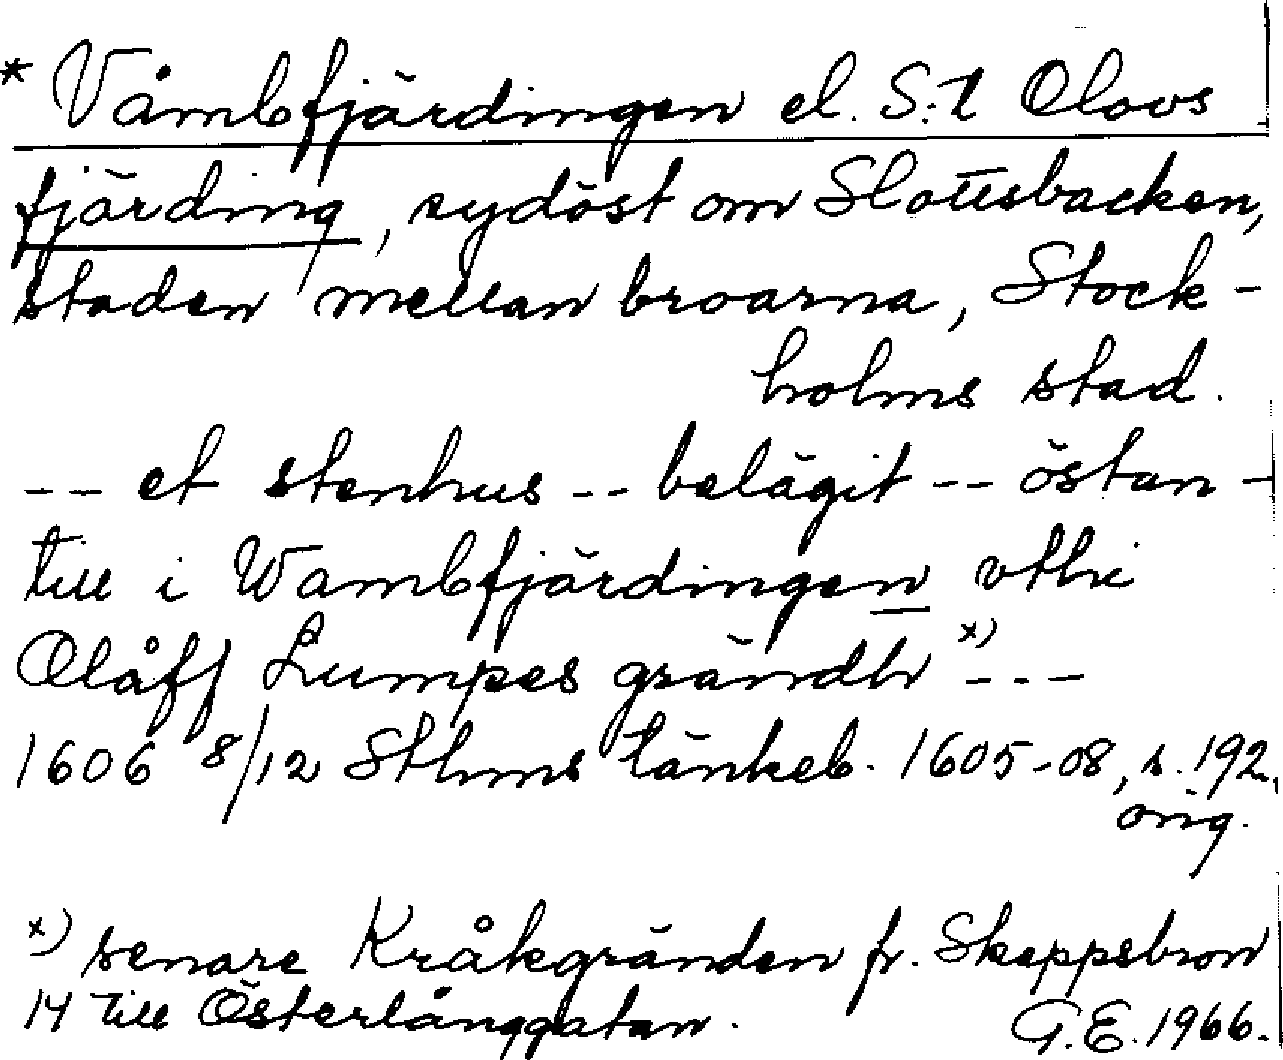 * Våmbfjärdingen el. S:t Olovs
fjärding, sydöst om Slottsbacken,
staden mellan broarna, Stock-
holms stad.
-- et stenhus -- belägit -- östan-
till i Wambfjärdingen vthi
Olåff Lumpes grändh x) ---
1606 8/12 Sthms tänkeb. 1605-08, s. 192,
orig.
x) senare Kråkgränden fr. Skeppsbron
14 till Österlånggatan.
G.E. 1966.